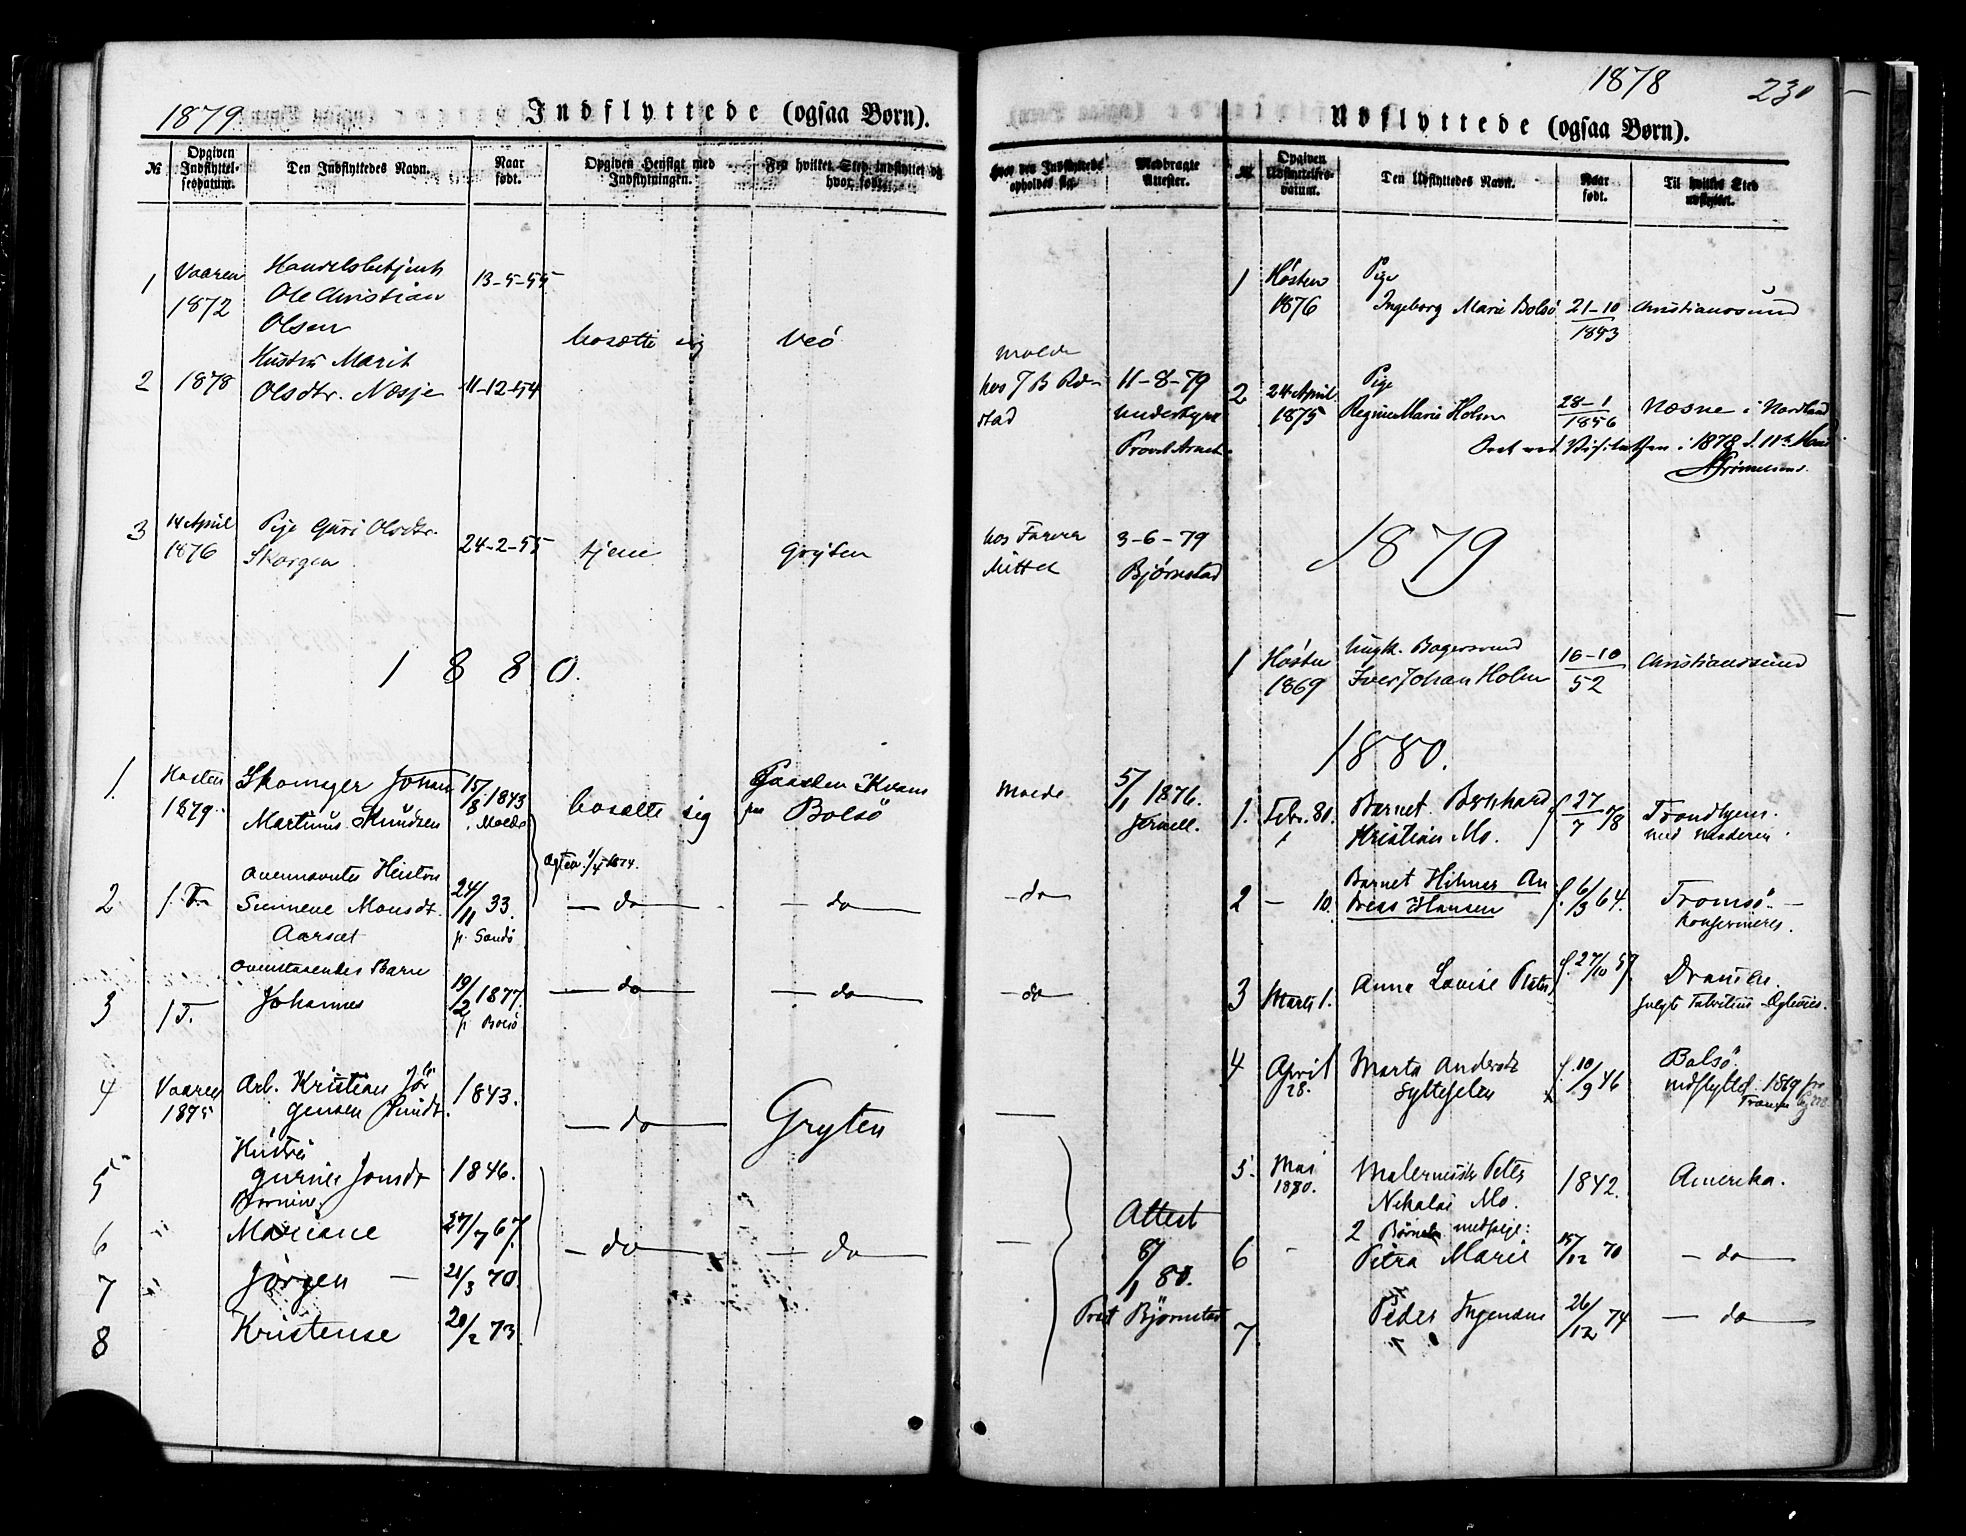 1879
Indflyttede (ogsaa Børn).
№
Opgiven Indflyttelsesdatum.
Den Indflyttedes Navn.
Naar født.
Opgiven Hensigt med Indflytningen.
Fra hvilket Sted indflyttet og hvor født.
1 Vaaren 1872
Handelsbetjent
Ole Christian
Olsen
13-5-55
bosætte sig
Veö
2 1878
Hustru Marit
Olsdtr. Næsje
11-12-54
3 14 April 1876
Pige Guri Olsdtr.
Skorgen
24-2-55
tjene
Gryten
1880.
1. Høsten 1879.
Skomager Johan
Martinus Knudsen
15/8 1843
i Molde
bosætte sig
Gaarden Kvam
paa Bolsö
2 f. T.
Ovennævntes Hustru
Sunneve Monsdt.
Aarsæt
24/11 33.
f. Sandö
Egtev. 1/4 1874.
do
do
3 f. T.
Ovenstaaendes Barn
Johannes
19/2 1877.
f. Bolsö
do
do
4 Vaaren 1875
Arb. Kristian Jör
gensen
1843.
do
Gryten
5 "
Hustru
Jonsdt
1846.
Börnene:
6 "
Mariane
27/7 67.
do
do
7 "
Jörgen
21/3 70.
8
Kristense
20/2 73.
1878
230
Udflyttede (ogsaa Børn).
hvor den Indflyttede opholder sig.
Medbragte Attester.
№
Opgiven Udflyttelsesdatum.
Den Udflyttedes Navn.
Naar født.
Til hvilket Sted udflyttet.
Molde
hos J B Rø-
stad
11-8-79
Provst
hos Farver
Mittet
3-6-79
Bjørnstad
Molde
5/1 1876.
do
do
Attest
8/1 80.
Prst Björnstad
1 Høsten 1876
Pige
Ingeborg Marie Bolsö
21-10
1853
Christianssund
2 24 April 1875
Pige
Regine Marie Holm
28-1
1856
Næsne i Nordland
1878 d. 11te
1879
1 Høsten 1869
Ungk. Bagersvend
Iver Johan Holm
16-10
52
Christianssund
1880.
1. Febr. 80.
Barnet Bernhard
Kristian Mo.
f 27/7 78
Trondhjem.
med Moderen.
2 - 10.
Barnet Hilmer An
dreas Hansen
f. 6/3 64.
Tromsö.
Konfirmeres.
3 Marts 1.
Anna Lovise
f. 27/10 59.
4 April 28.
Marta Andersdt
f. 10/9 46
Bolsö.
indflyttet 1869 fra
5. Mai 1880.
Malermester Peter
Nikolai Mo.
1842.
Amerika.
2 Börn medfølge:
6 -
Petra Marie
15/12 70
do
7
Peder Ingemann
26/12 74
do